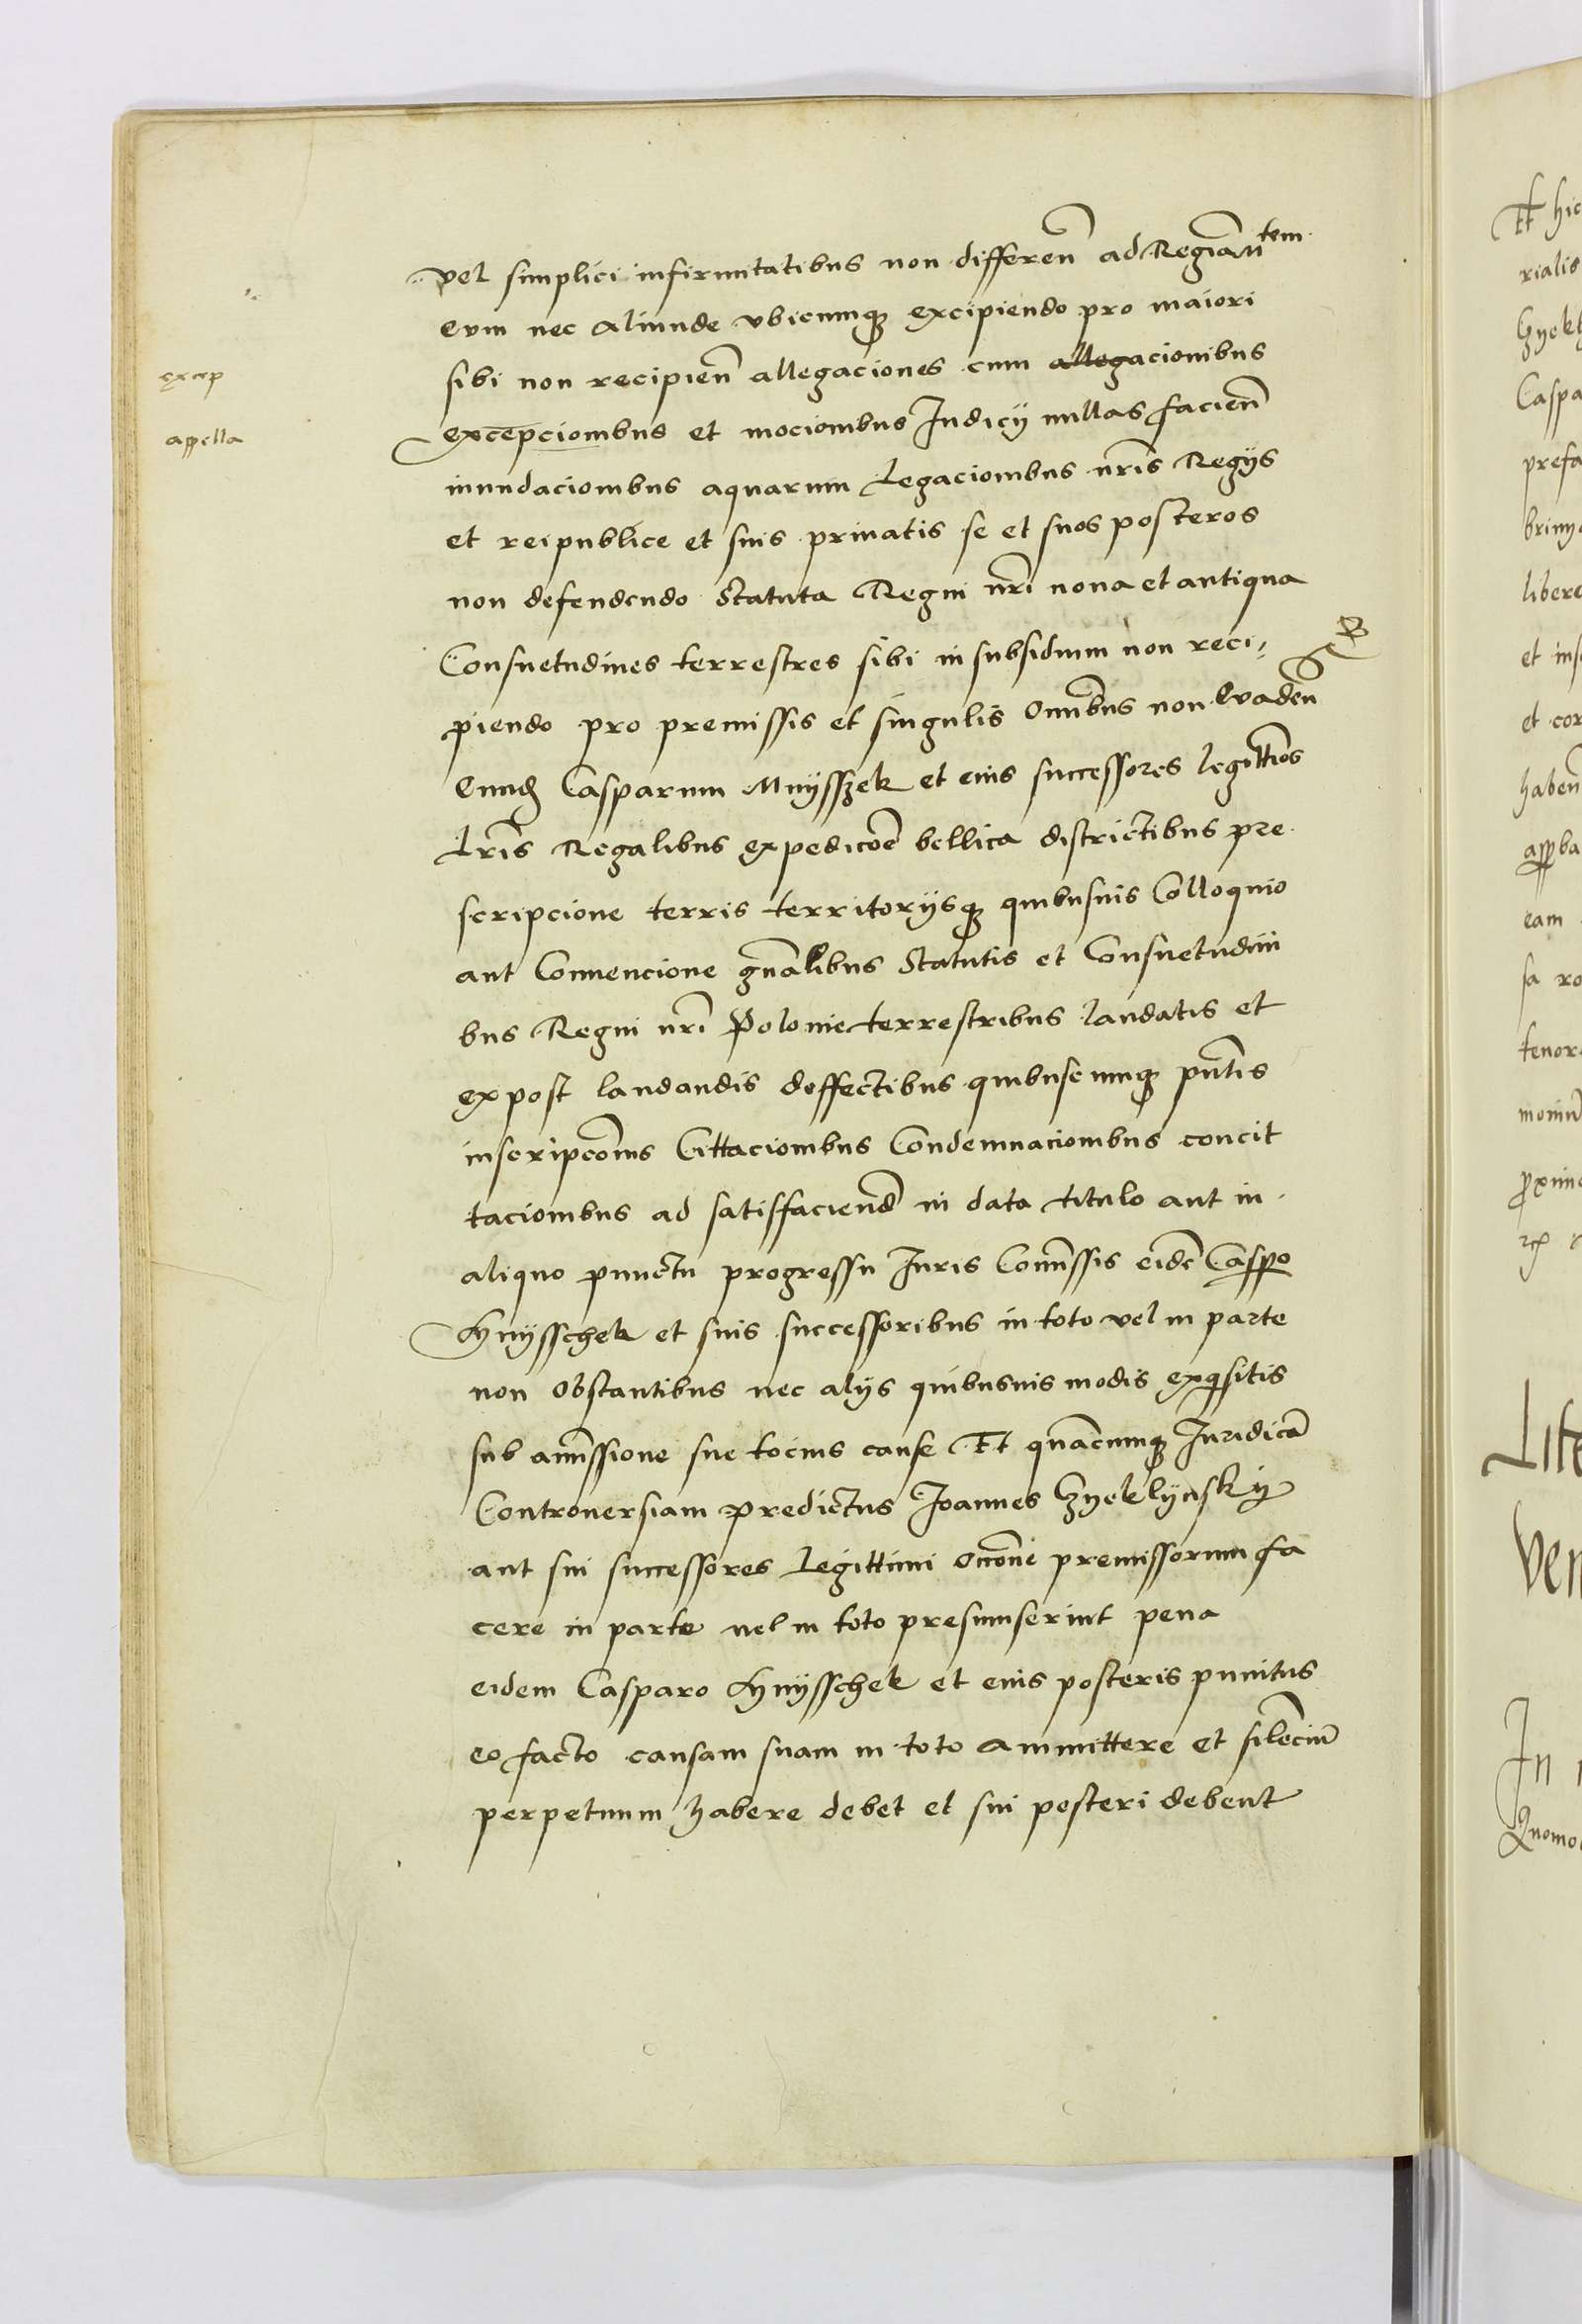 vel simplici infirmitatibus non differen̄ ad Regiam̄ tem
Cum nec aliunde vbicumq₃ excipiendo pro maiori
sibi non recipien̄ allegaciones cum allegacionibus
excep
excepcionibus et mocionibus Iudicij nullas facien̄
appella
inundacionibus aquarum legacionibus nr̄is Regijs
et reipublice et suis priuatis se et suos posteros
non defendendo Statuta Regni nr̄i noua et antiqua
Consuetudines terrestres sibi in subsidium non reci-
piendo pro premissis et singulis omnibus non Euaden̄
Eund Casparum Mnijsszek et eius successores legittīos
lr̄is Regalibus expedicōe bellica districtibus pre
scripcione terris territorijsq₃ quibusuis Colloquio
aut Conuencione gn̄alibus Statutis et Consuetudini
bus Regni nr̄i Polonie terrestribus laudatis et
expost laudandis deffectibus quibuscumq₃ pn̄tis
inscripcōnis Cittacionibus Condemnacionibus concit
tacionibus ad satisfaciend̄ in data titulo aut in
aliquo punctu progressu Iuris Com̄issis eidē Casp̱o
Mnijsschek et suis successoribus in toto vel in parte
non Obstantibus nec alijs quibusuis modis exq̄sitis
sub amissione sue tocius cause Et quācumq₃ Iuridicā
Controuersiam predictus Ioannes Gnyeklynskij
aut sui successores legittimi occōne premissorum fa
cere in parte uel in toto presumserint pena
eidem Casparo Mnijsschek et eius posteris punitus
eo facto causam suam in toto ammittere et silenciū
perpetuum habere debet et sui posteri debent
Et hic
rialis
Caspa
prefa
libere
et ins
et con
haben̄
appba
eam
sa
tenore
proxime
Lite
Ven
In
Quomo